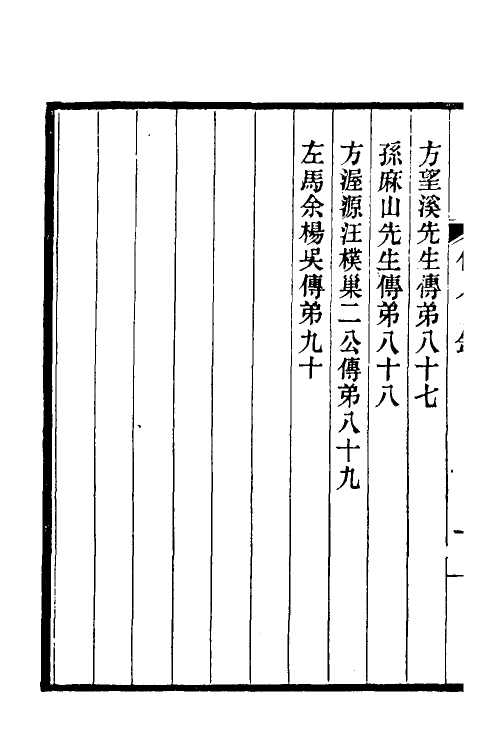 方望溪先生傳弟八十七
孫麻山先生傳弟八十八
方渥源汪樸巢二公傳弟八十九
左馬余楊吳傳弟九十